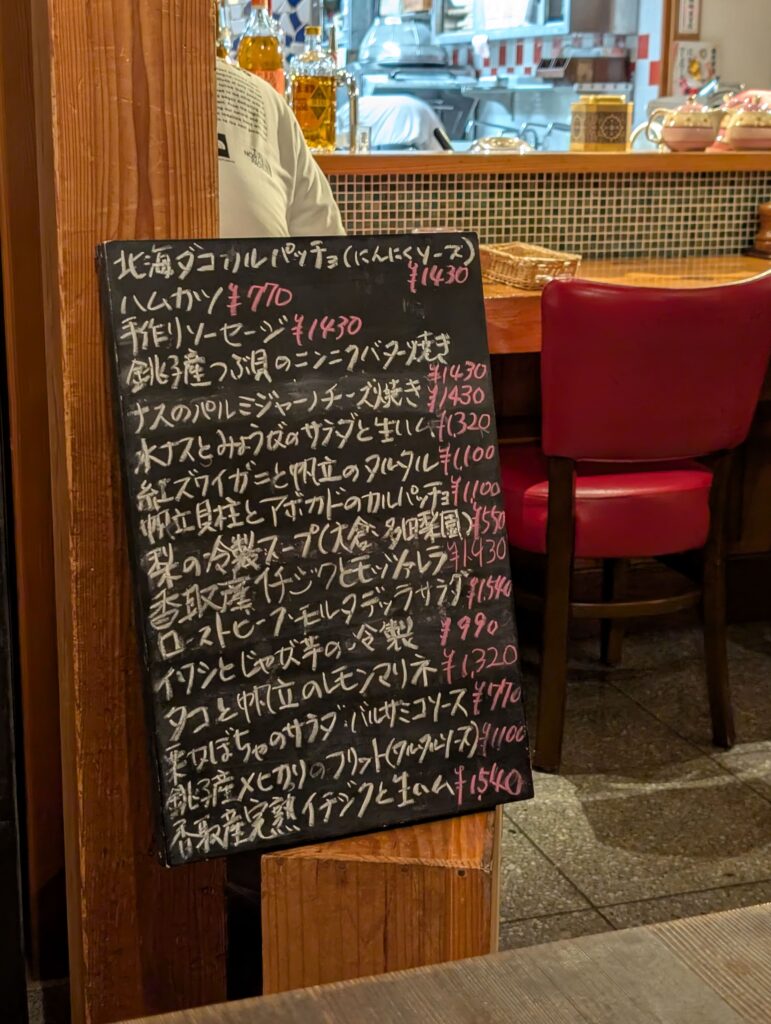 北海ダコカルパッチョ(にんにくソース)
¥1430
ハムカツ ¥770
手作りソーセージ ¥1430
銚子産つぶ貝のニンニクバター焼き
¥1430
ナスのパルミジャーノチーズ焼き ¥1430
水ナスとみょうばのサラダと生ハム ¥1,320
紅ズワイガニと帆立のタルタル ¥1,100
帆立貝柱とアボカドのカルパッチョ ¥1,100
梨の冷製スープ(大倉:多田梨園) ¥550
香取産 イチジクとモッツァレラ ¥1,430
ローストビーフ・モルタデッラサラダ ¥1,540
イワシとじゃが芋の冷製 ¥990
タコと帆立のレモンマリネ ¥1,320
栗かぼちゃのサラダ:バルサミコソース ¥770
銚子産メヒカリのフリット(タルタルソース) ¥1100
香取産完熟イチジクと生ハム ¥1,540